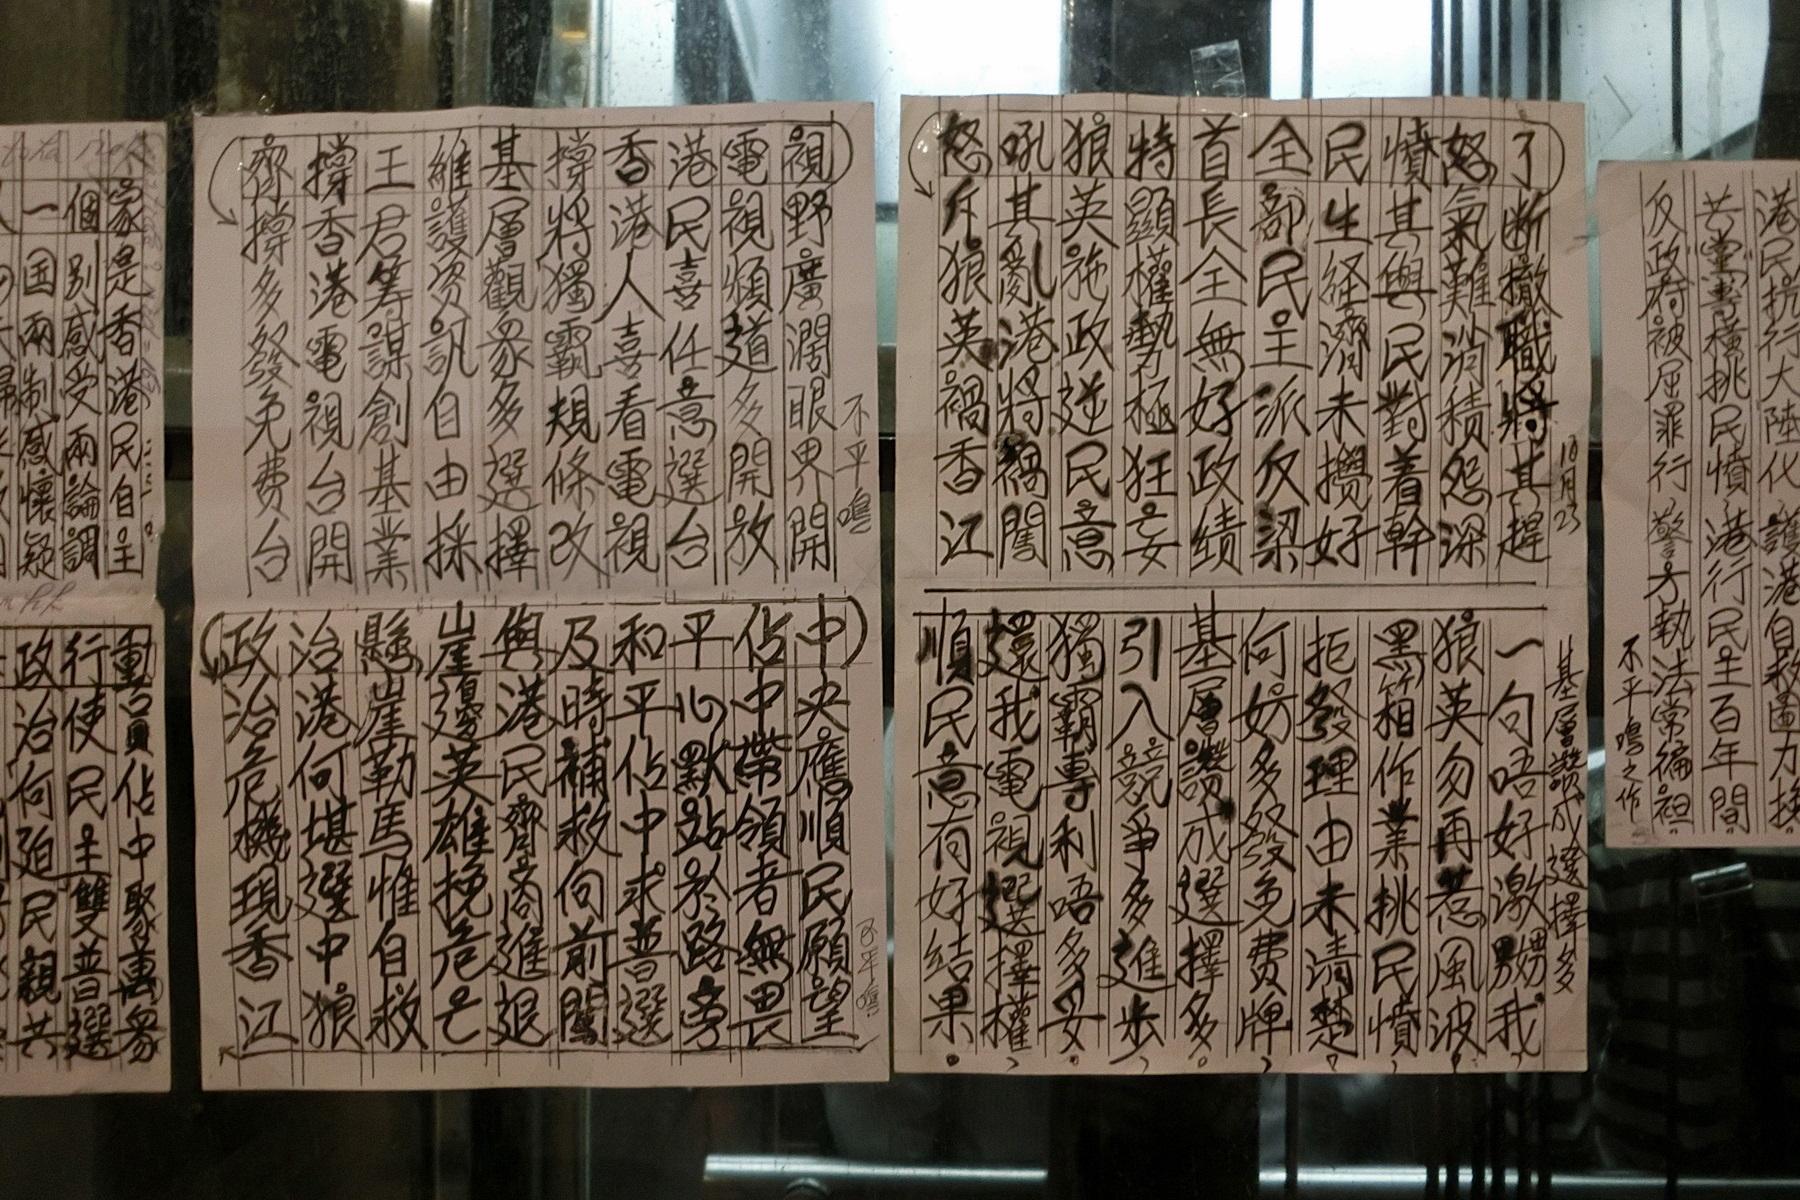 港民抗行大陸化 護港自救圖力挽
共黨專橫挑民憤 港行民主百年間
反政府被屈罪行 警方執法常偏袒
不平鳴之作
10月23
了断撤職將其趕
怒氣難消積怨深
憤其與民對着幹
民生経濟未攪好
全部民主派反梁
首長全無好政績
特顯權勢極狂妄
狼英施政逆民意
吼其亂港將禍闖
怒斥狼英禍香江
基層讚成選擇多
一句唔好激嬲我,
狼英勿再惹風波,
黑箱作業挑民憤,
拒發理由未清楚,
何妨多發免費牌,
基層讚成選擇多。
引入競爭多進步,
獨霸專利唔多妥。
還我電視選擇權,
順民意有好結果。
不平鳴
視野廣濶眼界開
電視頻道多開放
港民喜任意選台
香港人喜看電視
撐將獨霸規條改
基層觀眾多選擇
維護資訊自由採
王君籌謀創基業
撐香港電視台開
齊撐多發免費台
不平鳴
中央應順民願望
佔中帶領者無畏
平心默站於路旁
和平佔中求普選
及時補救向前闖
與港民齊商進退
崖邊英雄挽危亡
懸崖勒馬惟自救
治港何堪選中狼
政治危機現香江
家是香港民自主
個別感受兩論調
一国兩制感懷疑
動員佔中聚萬眾
行使民主雙普選
政治何廹民親共